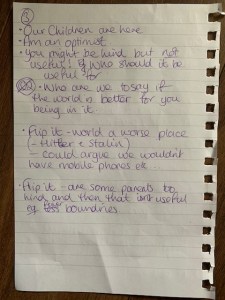 ③
• Our Children are here
• Am an optimist
• You might be kind but not
useful! if Who should it be
useful for
• Who are we to say if
the world is better for you
being in it
• Flip it - world a worse place
(- Hitler + Stalin)
- could argue we wouldn't
have mobile phones etc...
• Flip it - are some parents to
kind and then that isnt useful
eg boundries